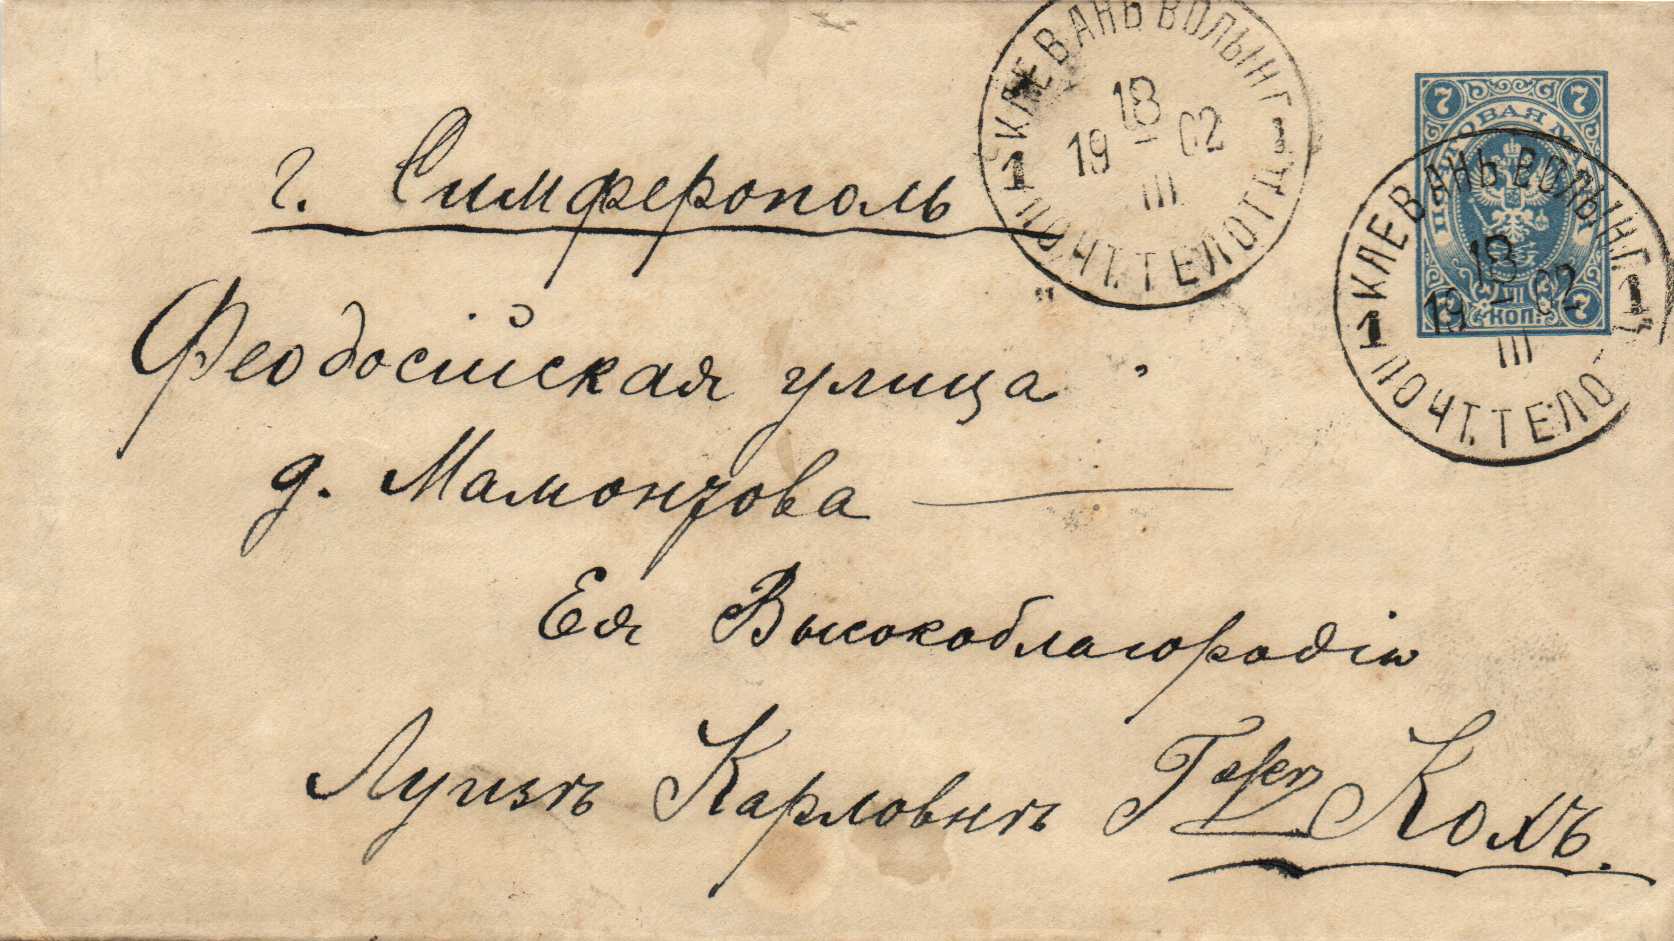 КЛЕВАНЬ ВОЛЫНГ.
18
19 — 02
III
1 1
ПОЧТ. ТЕЛ. ОТД.
7 7
ПОЧТОВАЯ МАРКА
7 КОП. 7
КЛЕВАНЬ ВОЛЫНГ.
18
19 — 02
III
1 1
ПОЧТ. ТЕЛ. ОТД.
г. Симферополь
Феодосійская улица
д. Мамонтова
Ея Высокоблагородію
Луизѣ Карловнѣ Кохъ.